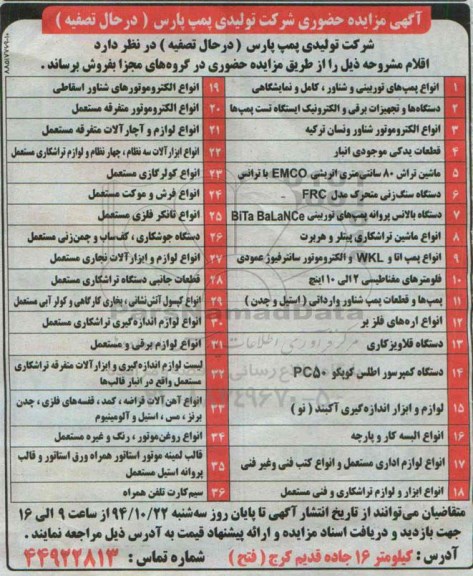 آگهی مزایده حضوری شرکت تولیدی پمپ پارس ( درحال تصفیه )
شرکت تولیدی پمپ پارس ( درحال تصفیه ) در نظر دارد
اقلام مشروحه ذیل را از طریق مزایده حضوری در گروه‌های مجزا بفروش برساند .
۱ انواع پمپ‌های توربینی و شناور ، کامل و نمایشگاهی
۲ دستگاه‌ها و تجهیزات برقی و الکترونیک ایستگاه تست پمپ‌ها
۳ انواع الکتروموتور شناور ونسان ترکیه
۴ قطعات یدکی موجودی انبار
۵ ماشین تراش ۸۰ سانتی‌متری اتریشی EMCO با ترانس
۶ دستگاه سنگ‌زنی متحرک مدل FRC
۷ دستگاه بالانس پروانه پمپ‌های توربینی BiTa BaLaNCe
۸ انواع ماشین تراشکاری پیتلر و هربرت
۹ انواع پمپ اتا و WKL و الکتروموتور سانترفیوژ عمودی
۱۰ فلومترهای مغناطیسی ۲ الی ۱۰ اینچ
۱۱ پمپ‌ها و قطعات پمپ شناور وارداتی ( استیل و چدن )
۱۲ انواع اره‌های فلز بر
۱۳ دستگاه قلاویزکاری
۱۴ دستگاه کمپرسور اطلس کوپکو PC50
۱۵ لوازم و ابزار اندازه‌گیری آکبند ( نو )
۱۶ انواع البسه کار و پارچه
۱۷ انواع لوازم اداری مستعمل و انواع کتب فنی وغیر فنی
۱۸ انواع ابزار و لوازم تراشکاری و فنی مستعمل
۱۹ انواع الکتروموتورهای شناور اسقاطی
۲۰ انواع الکتروموتور متفرقه مستعمل
۲۱ انواع لوازم و آچارآلات متفرقه مستعمل
۲۲ انواع ابزارآلات سه نظام ، چهار نظام و لوازم تراشکاری مستعمل
۲۳ انواع کولر گازی مستعمل
۲۴ انواع فرش و موکت مستعمل
۲۵ انواع تانکر فلزی مستعمل
۲۶ دستگاه جوشکاری ، کف‌ساب و چمن‌زنی مستعمل
۲۷ انواع لوازم و ابزارآلات نجاری مستعمل
۲۸ قطعات جانبی دستگاه تراشکاری مستعمل
۲۹ انواع کپسول آتش‌نشانی ، بخاری کارگاهی و کولر آبی مستعمل
۳۰ انواع لوازم اندازه‌گیری تراشکاری مستعمل
۳۱ انواع لوازم برقی و مستعمل
۳۲ لیست لوازم اندازه‌گیری و ابزارآلات متفرقه تراشکاری
مستعمل واقع در انبار قالب‌ها
۳۳ انواع آهن آلات قراضه ، کمد ، قفسه‌های فلزی ، چدن
برنز ، مس ، استیل و آلومینیوم
۳۴ انواع روغن‌موتور ، رنگ و غیره مستعمل
۳۵ قالب لمینه موتور استاتور همراه ورق استاتور و قالب
پروانه استیل مستعمل
۳۶ سیم‌کارت تلفن همراه
متقاضیان می‌توانند از تاریخ انتشار آگهی تا پایان روز سه‌شنبه ۹۴/۱۰/۲۲ از ساعت ۹ الی ۱۶
جهت بازدید و دریافت اسناد مزایده و ارائه پیشنهاد قیمت به آدرس ذیل مراجعه نمایند .
آدرس : کیلومتر ۱۶ جاده قدیم کرج ( فتح ) شماره تماس : ۴۴۹۲۲۸۱۳
ParsNamadData